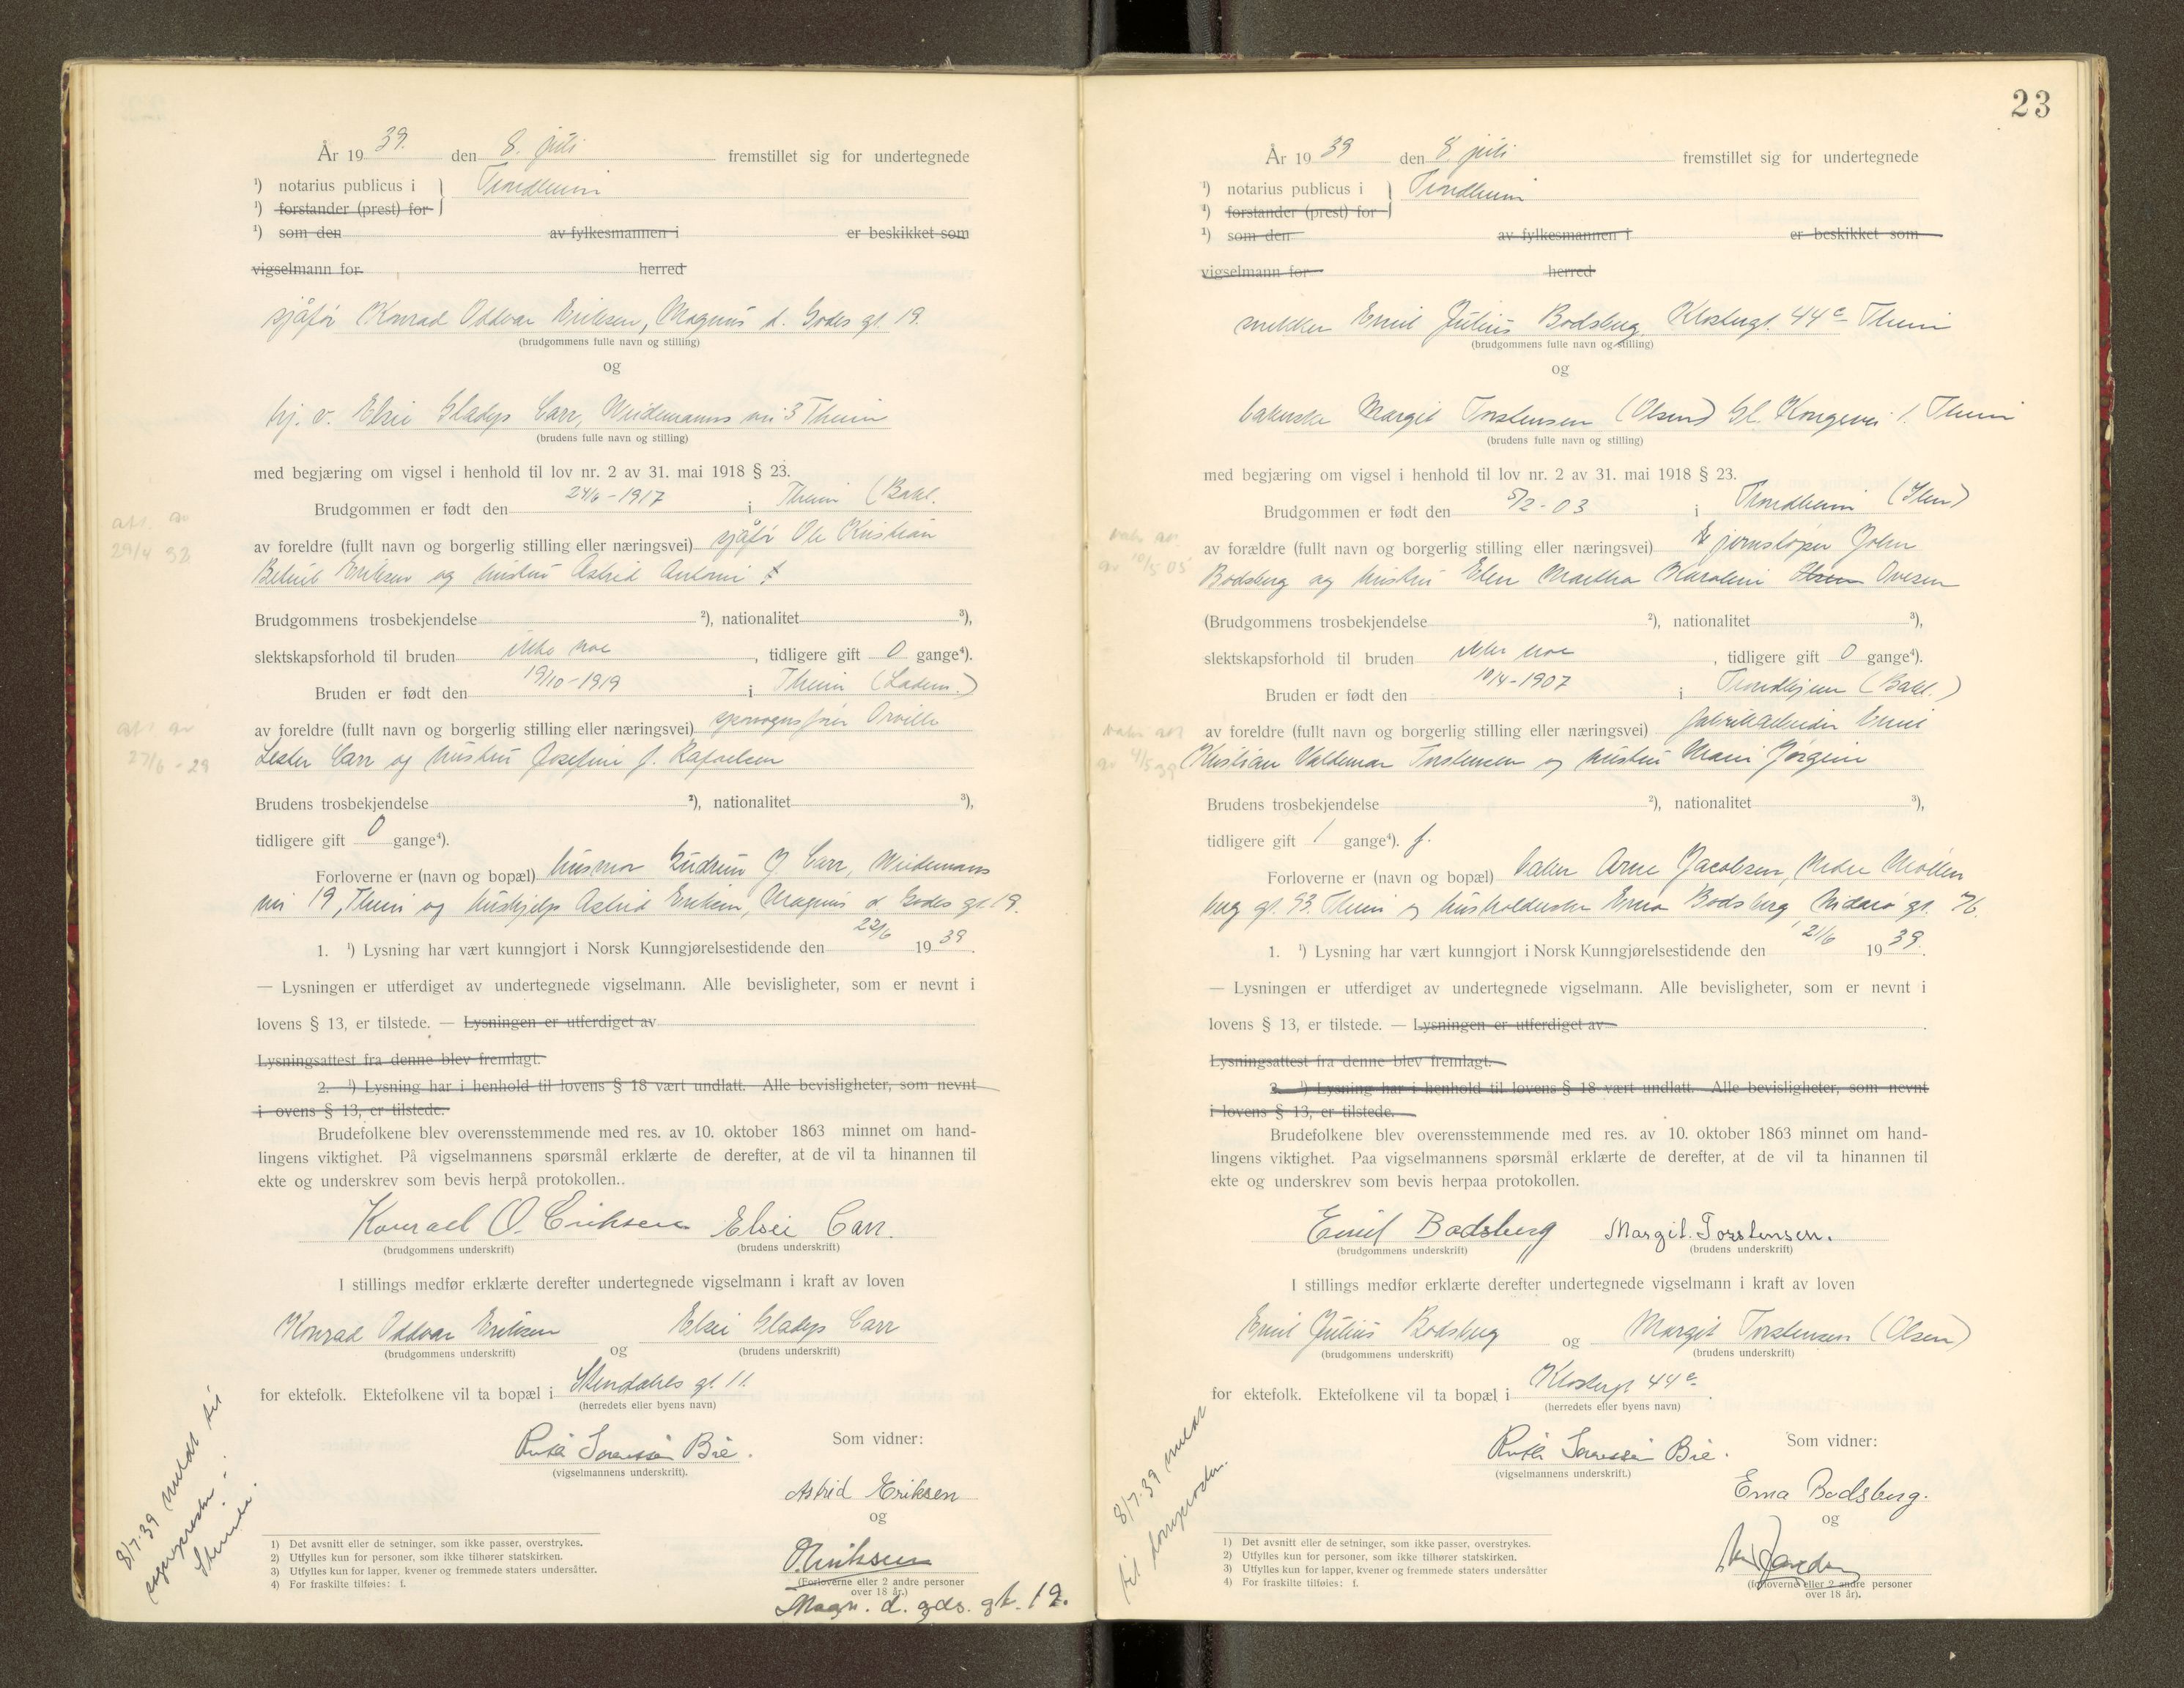 År 19 39. den 8. juli fremstillet sig for undertegnede
¹) notarius publicus i } Trondheim
¹) forstander (prest) for
¹) som den av fylkesmannen i er beskikket som
vigselmann for herred
sjåfør Konrad Oddvar Eriksen, Magnus d. Godes gt. 19.
(brudgommens fulle navn og stilling)
og
hj. v. Elsie Gladys Carr, Weidemanns vei 3 Theim
(brudens fulle navn og stilling)
med begjæring om vigsel i henhold til lov nr. 2 av 31. mai 1918 § 23.
Brudgommen er født den 24/6 - 1917 i Theim (Bakl.
av foreldre (fullt navn og borgerlig stilling eller næringsvei) sjåfør Ole Kristian
Eriksen og hustru Astrid Antoni
Brudgommens trosbekjendelse ²), nationalitet ³),
slektskapsforhold til bruden ikke noe, tidligere gift 0 gange⁴).
Bruden er født den 19/10 - 1919 i Theim (Ladem.)
av foreldre (fullt navn og borgerlig stilling eller næringsvei) sporvognsfører Orville
Lester Carr og hustru Josefine f. Rafaelsen
Brudens trosbekjendelse ²), nationalitet ³),
tidligere gift 0 gange⁴).
Forloverne er (navn og bopæl) husmor Gudrun J. Carr, Weidemanns
vei 19, Theim og hushjelp Astrid Eriksen, Magnus d Godes gt. 19.
1. ¹) Lysning har vært kunngjort i Norsk Kunngjørelsestidende den 22/6 19 39.
— Lysningen er utferdiget av undertegnede vigselmann. Alle bevisligheter, som er nevnt i
lovens § 13, er tilstede. — Lysningen er utferdiget av
Lysningsattest fra denne blev fremlagt.
2. ¹) Lysning har i henhold til lovens § 18 vært undlatt. Alle bevisligheter, som nevnt
i ovens § 13, er tilstede.
Brudefolkene blev overensstemmende med res. av 10. oktober 1863 minnet om hand-
lingens viktighet. På vigselmannens spørsmål erklærte de derefter, at de vil ta hinannen til
ekte og underskrev som bevis herpå protokollen..
Konrad O. Eriksen Elsie Carr.
(brudgommens underskrift) (brudens underskrift)
I stillings medfør erklærte derefter undertegnede vigselmann i kraft av loven
Konrad Oddvar Eriksen og Elsie Gladys Carr
(brudgommens underskrift) (brudens underskrift)
for ektefolk. Ektefolkene vil ta bopæl i Stendahls gt. 11.
(herredets eller byens navn)
Ruth Sørenssen Bie.
(vigselmannens underskrift).
Som vidner:
Astrid Eriksen
og
O. Eriksen
(Forloverne eller 2 andre personer
over 18 år.)
Magn. d. gds. gt. 19.
1) Det avsnitt eller de setninger, som ikke passer, overstrykes.
2) Utfylles kun for personer, som ikke tilhører statskirken.
3) Utfylles kun for lapper, kvener og fremmede staters undersåtter.
4) For fraskilte tilføies: f.
att. av
29/4 32
att. av
27/6 - 29
8/7-39 meldt til
sognepresten
23
År 19 39 den 8. juli fremstillet sig for undertegnede
¹) notarius publicus i } Trondheim
¹) forstander (prest) for
¹) som den av fylkesmannen i er beskikket som
vigselmann for herred
snekker Emil Julius Bodsberg, Klostergt. 44c Theim
(brudgommens fulle navn og stilling)
og
bakerske Margit Torstensen (Olsen) Gl. Kongevei 1. Theim
(brudens fulle navn og stilling)
med begjæring om vigsel i henhold til lov nr. 2 av 31. mai 1918 § 23.
Brudgommen er født den 5/2 - 03 i Trondheim (Ilen)
av forældre (fullt navn og borgerlig stilling eller næringsvei) jernstøper John
Bodsberg og hustru Elen Martha Karoline Olsen Ovesen
(Brudgommens trosbekjendelse ²), nationalitet ³),
slektskapsforhold til bruden ikke noe, tidligere gift 0 gange⁴).
Bruden er født den 10/4 - 1907 i Trondhjem (Bakl.)
av foreldre (fullt navn og borgerlig stilling eller næringsvei) fabrikkarbeider Emil
Kristian Valdemar Torstensen og hustru Marie Jørgine
Brudens trosbekjendelse ²), nationalitet ³),
tidligere gift 1 gange⁴). f.
Forloverne er (navn og bopæl) baker Arne Jacobsen, Nedre Møllen
berg gt. 93. Theim og husholderske Erna Bodsberg, Nidarø gt.
1. ¹) Lysning har vært kunngjort i Norsk Kunngjørelsestidende den 21/6 19 39.
— Lysningen er utferdiget av undertegnede vigselmann. Alle bevisligheter, som er nevnt i
lovens § 13, er tilstede. — Lysningen er utferdiget av .
Lysningsattest fra denne blev fremlagt.
2. ¹) Lysning har i henhold til lovens § 18 vært undlatt. Alle bevisligheter, som nevnt
i lovens § 13, er tilstede.
Brudefolkene blev overensstemmende med res. av 10. oktober 1863 minnet om hand-
lingens viktighet. Paa vigselmannens spørsmål erklærte de derefter, at de vil ta hinannen til
ekte og underskrev som bevis herpaa protokollen.
Emil Bodsberg Margit. Torstensen.
(brudgommens underskrift) (brudens underskrift)
I stillings medfør erklærte derefter undertegnede vigselmann i kraft av loven
Emil Julius Bodsberg og Margit Torstensen (Olsen)
(brudgommens underskrift) (brudens underskrift)
for ektefolk. Ektefolkene vil ta bopæl i Klostergt 44c.
(herredets eller byens navn)
Ruth Sørenssen Bie.
(vigselmannens underskrift.)
Som vidner:
Erna Bodsberg.
og
(forloverne eller 2 andre personer
over 18 år).
1) Det avsnitt eller de setninger, som ikke passer, overstrykes.
2) Utfylles kun for personer, som ikke tilhører statskirken.
3) Utfylles kun for lapper, kvener og fremmede staters undersåtter
4) For fraskilte tilføies: f.
8/7-39 meldt
til domprosten.